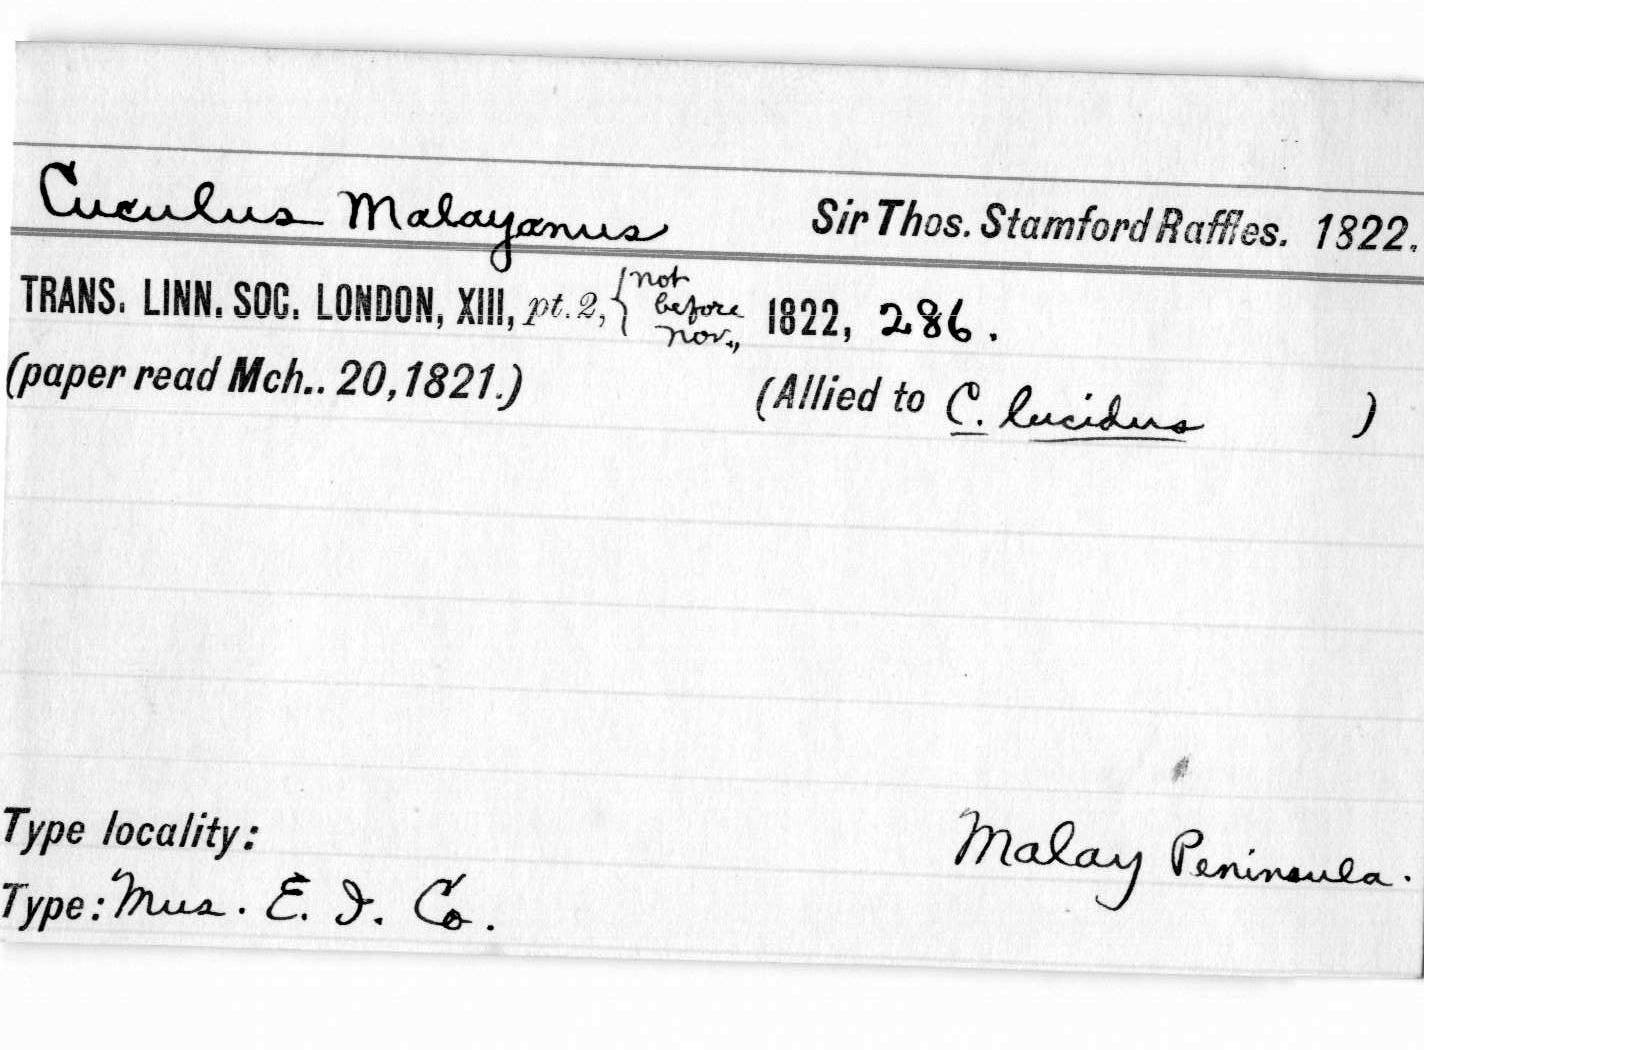 Cuculus Malayanus Sir Thos. Stamford Raffles. 1822.
TRANS. LINN. SOC. LONDON, XIII, pt. 2, { not before nov., 1822, 286.
(paper read Mch.. 20, 1821.) (Allied to C. lucidus )
Type locality: Malay Peninsula.
Type: Mus. E. I. Co.